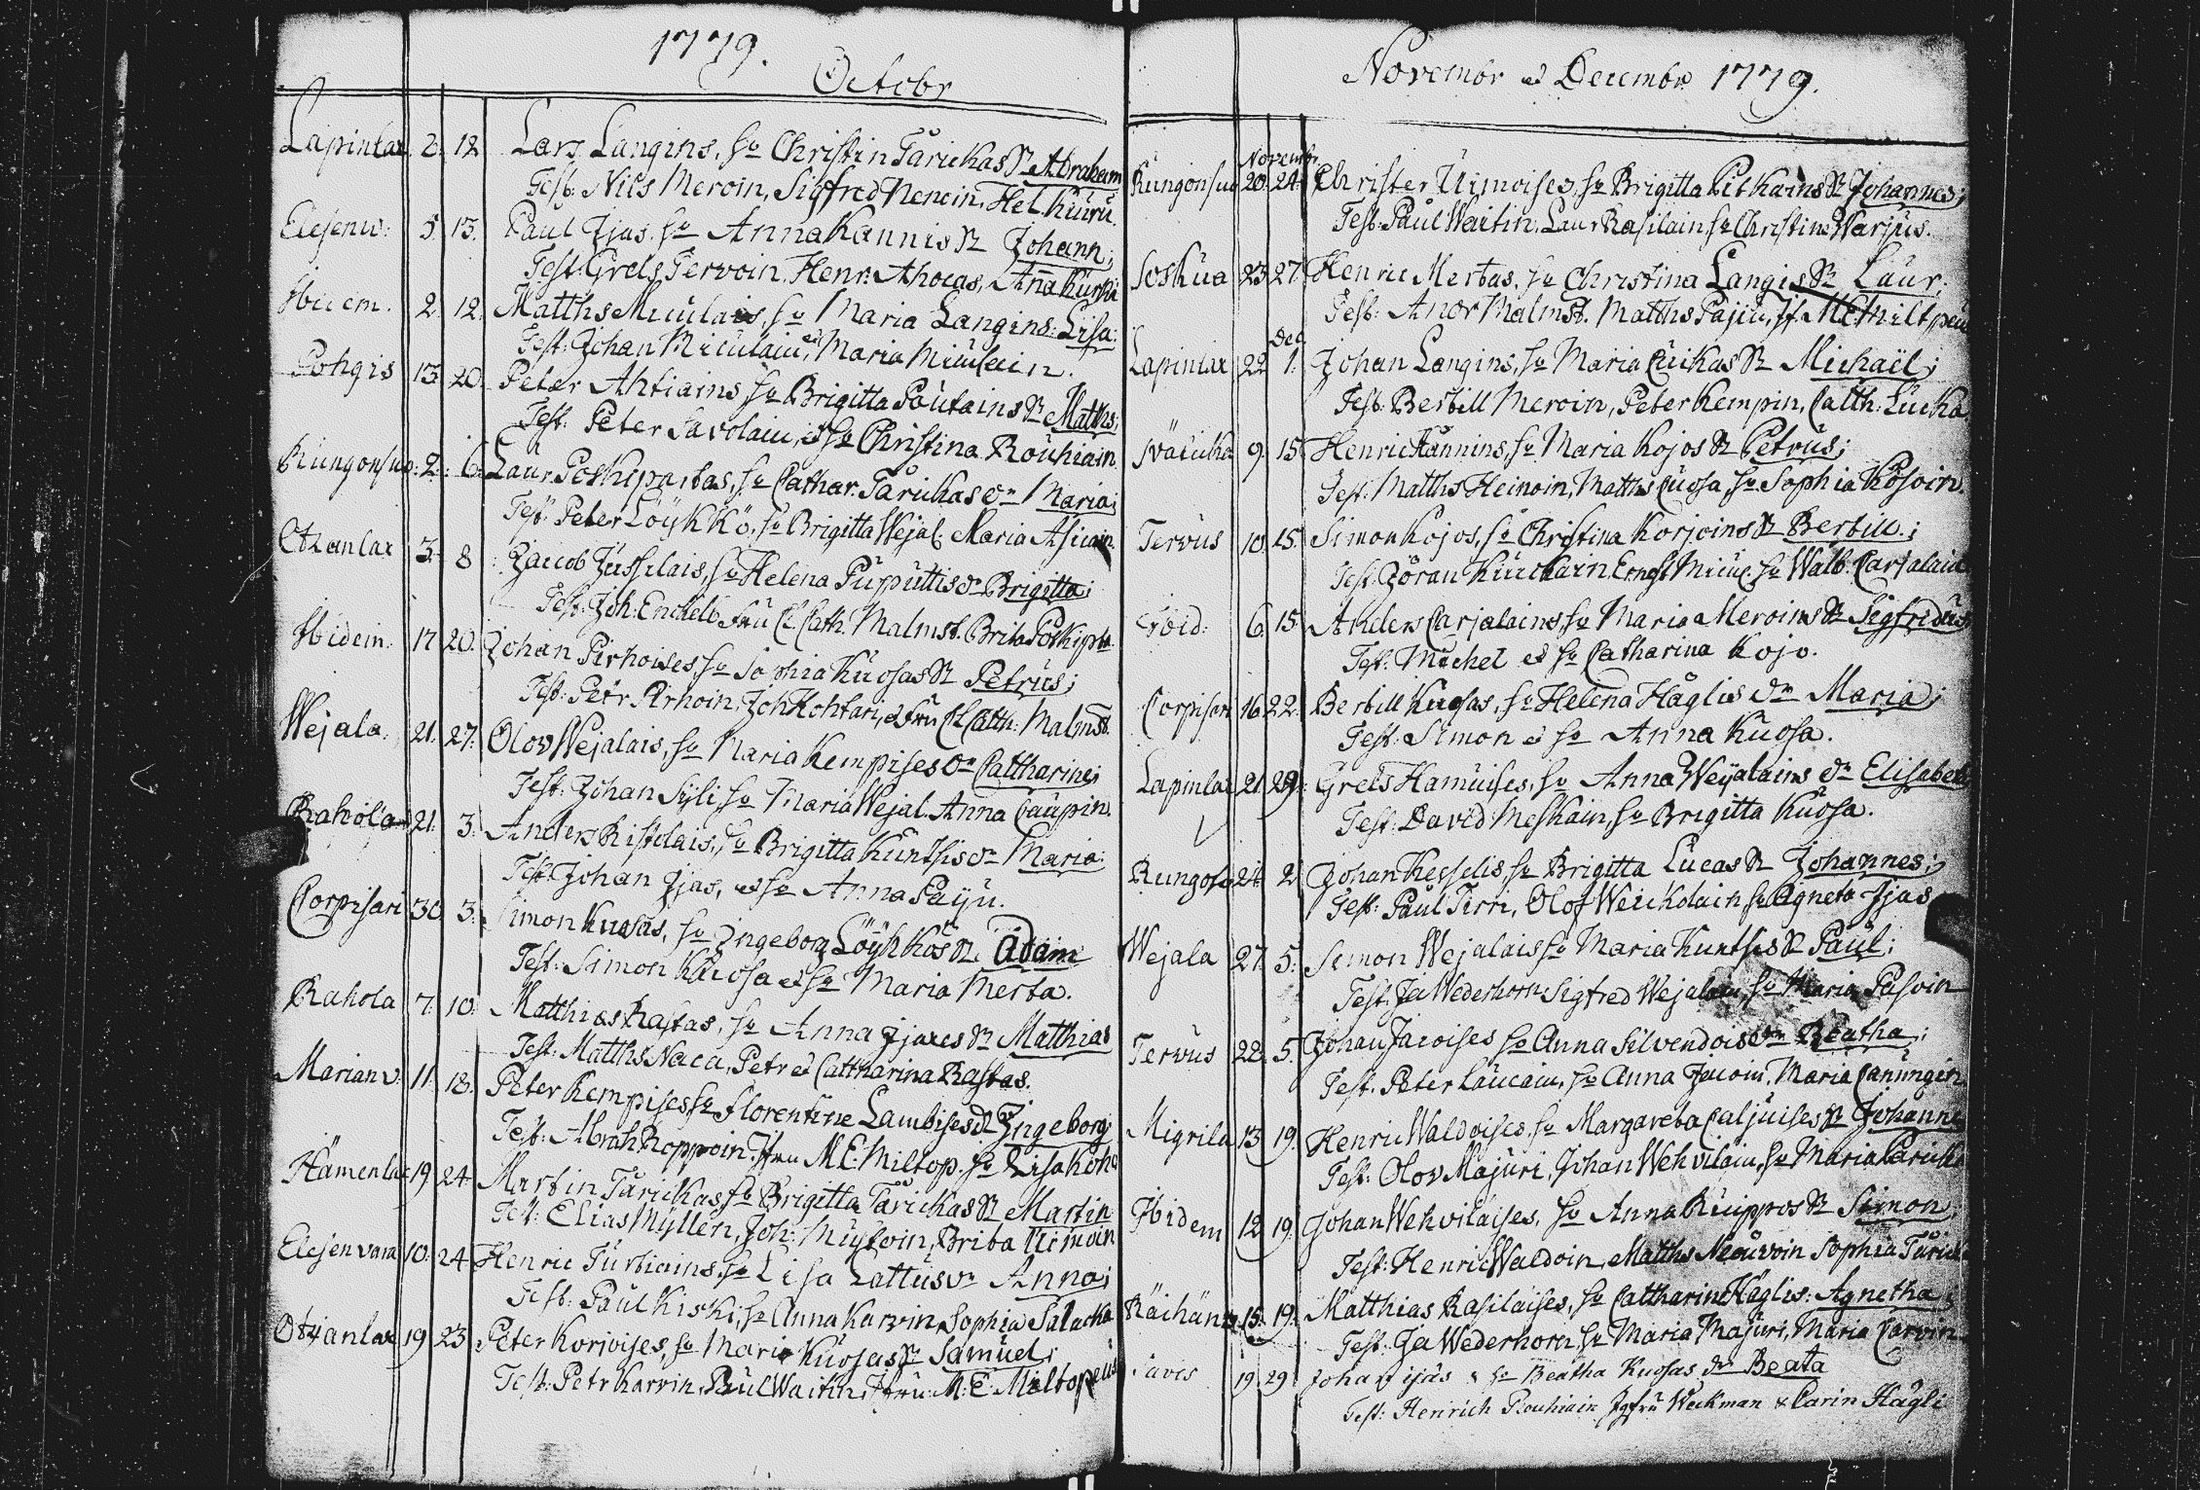 1779.
Octobr
Lapinlax 2. 12 Lars Langins, hu Christin Tarickas Sn Abraham
Test: Nils Meroin, Sigfred Nenoin, Hel. Kuru.
Elesenv: 5 13. Paul Ijas, hu Anna Kannis Sn Johann;
Test: Grels Tervoin, Henr. Ahocas, Anna Kurki
2. 12. Matths Miculais, hu Maria Langins: Lisa;
Test: Johan Miculain, Maria Miculain.
Pohgis 13 20. Peter Ahtiains hu Brigitta Poutains Sn Matths;
Test: Peter Savolain, et hu Christina Rouhiain.
Rungonsuo: 2. 6. Laur. Poskiparta, hu Cathar. Tarickas dr Maria;
Test: Peter Löykkö, hu Brigitta Wejal. Maria
3. 8 Jacob Jusselais, hu Helena Puputtis dr Brigitta;
Test: Joh. Enckelt Fru Cath. Malmst. Brita
Ibidem. 17 20. Johan Pirhoises, hu Sophia Kuosas Sn Petrus;
Test: Petr Pirhoin, Joh Kohtari, et Fru Cath: Malmst.
Wejala. 21. 27. Olov Wejalais, hu Maria Kempises dr Cattharina;
Test: Johan Syli, hu Maria Wejal. Anna Caupin.
Rahola 21. 3. Anders Ristolais, hu Brigitta Kuntsis dr Maria:
Test: Johan Ijas, et hu Anna Paiju.
Corpisari 30 3. Simon Kuosas, hu Ingeborg Löykkös Sn Adam
Test: Simon Kuosa et hu Maria Merta.
Rahola 7. 10. Matthias Rastas, hu Anna Ijaxes Sn Matthias
Test: Matths Naca, Petr et Cattharina Rastas.
Marianv: 11. 18. Peter Kempises hu Florentine Lambises dr Ingeborg;
Test: Abrah Roppoin, Jfru M.E. Miltop. hu Lisa
Hämenlax 19 24 Martin Tarickas, hu Brigitta Tarickas Sn Martin
Test: Elias Myllen, Joh: Brita Uimoin
Elesenvara 10. 24 Henric Turtiains, hu Lisa Lattus dr Anna;
Test: Paul Kiski, hu Anna Karvin, Sophia
19 23 Peter Korvoises, hu Maria Kuosas Sn Samuel;
Test: Petr Karvin, Paul Waitin, Jfru: M:E: Miltopeus
Novembr et Decembr 1779.
Novembr.
Rungonsuo 20. 24. Christer Uimoises, hu Brigitta Pitkains Sn Johannes;
Test: Paul Waitin, Laur Rasilain, hu Christina Warjus.
Soskua 23 27. Henric Mertas, hu Christina Langis Sn Laur;
Test: Andr Malmst. Matths Pajiu, Jf. M.E. Miltpeu
Dec
Lapinlax 22 1. Johan Langins, hu Maria Cuikas Sn Michaël;
Test: Bertill Meroin, Peter Kempin, Catth: Lucka.
9. 15. Henric Hannins, hu Maria Kojos Sn Petrus;
Test: Matths Heinoin, Matths Cuosa, hu Sophia
Tervus 10. 15. Simon Kojos, hu Christina Korjoins Sn Bertill;
Test: Jöran Kuickain, Ernst hu Walb. Carjalain
Ibid: 6. 15. Anders Carjalains, hu Maria Meroins Sn Sigfridus
Test: Michel et hu Catharina Kojo.
Corpisari 16 22. Bertill Kuosas, hu Helena Häglis dr Maria;
Test: Simon et hu Anna Kuosa.
Lapinlax 21 29. Grels Hamuises, hu Anna Weijalains dr Elisabet
Test: David Meskain, hu Brigitta Kuosa.
Rungos 24 2. Johan Kesselis, hu Brigitta Lucas Sn Johannes;
Test: Paul Terri, Olof Weickolain, hu Agneta Ijas
Wejala 27. 5. Simon Wejalais hu Maria Kuntsis Sn Paul;
Test: Ja Wederhorn, Sigfred Wejalain, hu Maria Pasoin
Tervus 22. 5. Johan Jacoises hu Anna Silvendois dr Beatha;
Test: Peter Laucain, hu Anna Jacoin, Maria
Migrila 13 19. Henric Waldoises, hu Margareta Caljuises Sn Johanne
Test: Olov Majuri, Johan Wehvilain, hu Maria
Ibidem 12 19. Johan Wehviläises, hu Anna Ruippos Sn Simon;
Test: Henric Waldoin, Matths Nouvoin Sophia
Räihänr 15. 19. Matthias Rasilaises, hu Cattharina Häglis: Agnetha;
Test: Ja Wederhorn, hu Maria Majuri, Maria Carvin
19 29 Johan Ijäs, hu Beatha Kuosas dr Beata
Test: Henrich Rouhiain Jgfru Weckman & Carin Hägli